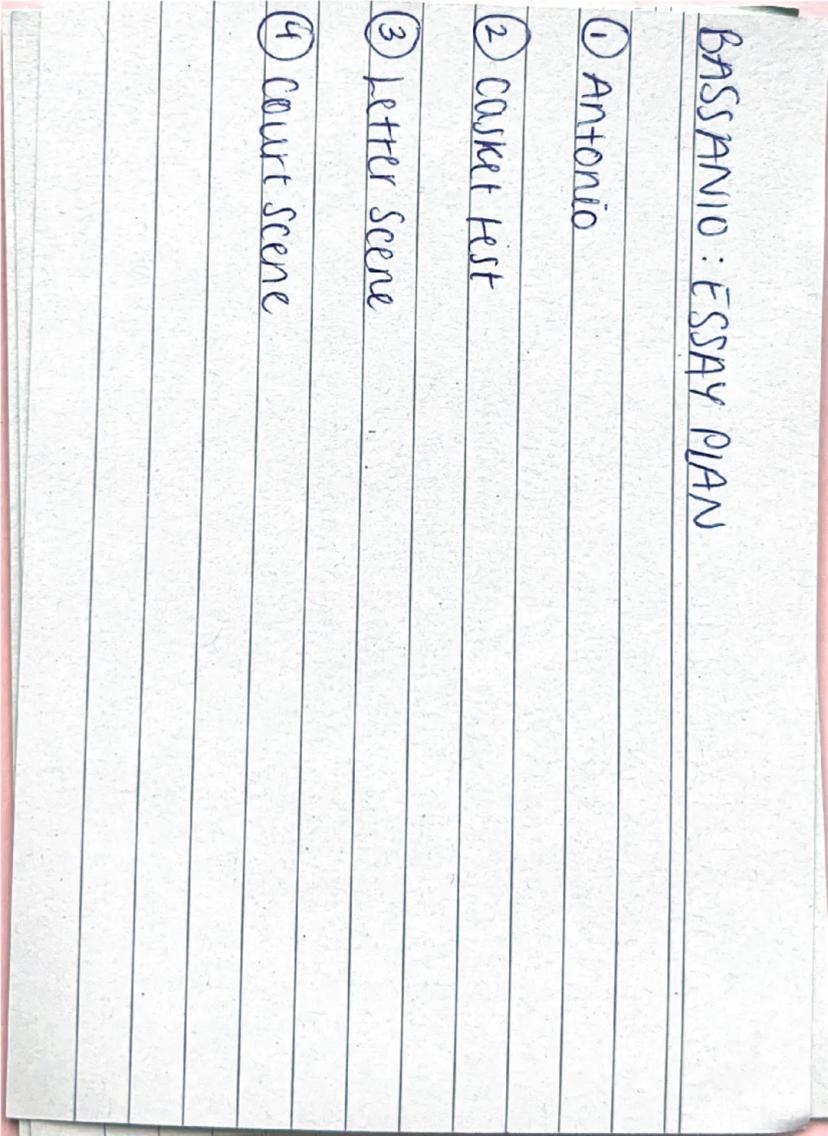 BASSANIO : ESSAY PLAN
① Antonio
② Casket test
③ Letter scene
④ Court scene